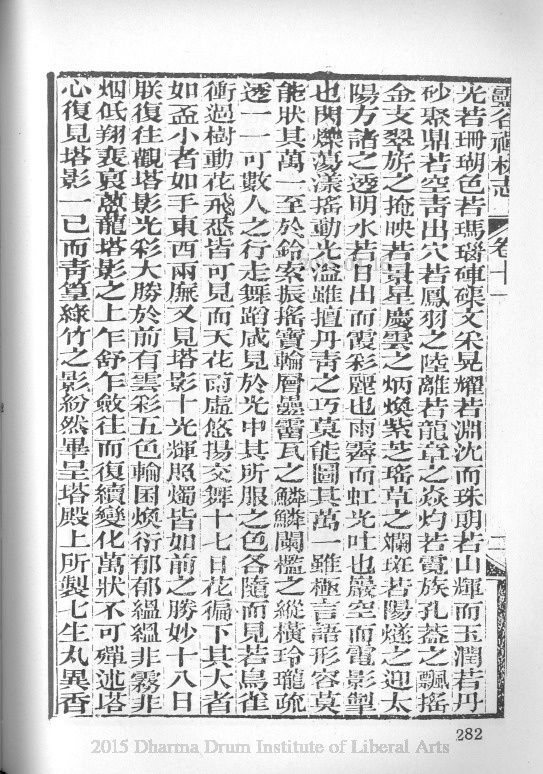 靈谷禪林志 卷十一 二
光若珊瑚色若瑪瑙硨磲文采晃耀若淵沈而珠朗若山輝而玉潤若丹
砂聚鼎若空青出穴若鳳羽之陸離若龍章之焱灼若霓旌孔蓋之飄搖
金支翠旂之掩映若景星慶雲之炳煥紫芝瑤草之斕斑若陽燧之迎太
陽方諸之透明水若日出而霞彩麗也雨霽而虹光吐也巖空而電影掣
也閃爍蕩漾搖動光溢雖擅丹青之巧莫能圖其萬一雖極言語形容莫
能狀其萬一至於鈴索振搖寶輪層疊霤瓦之鱗鱗闌檻之縱橫玲瓏疏
透一一可數人之行走舞蹈咸見於光中其所服之色各隨而見若鳥雀
衝過樹動花飛悉皆可見而天花雨虛悠揚交舞十七日花徧下其大者
如盃小者如手東西兩廡又見塔影十光輝照燭皆如前之勝妙十八日
朕復往觀塔影光彩大勝於前有雲彩五色輪囷煥衍郁郁縕縕非霧非
烟低翔裵裒鸞龍塔影之上乍舒乍斂往而復續變化萬狀不可殫述塔
心復見塔影一已而青篁綠竹之影紛然畢呈塔殿上所製七生丸異香
282
2015 Dharma Drum Institute of Liberal Arts